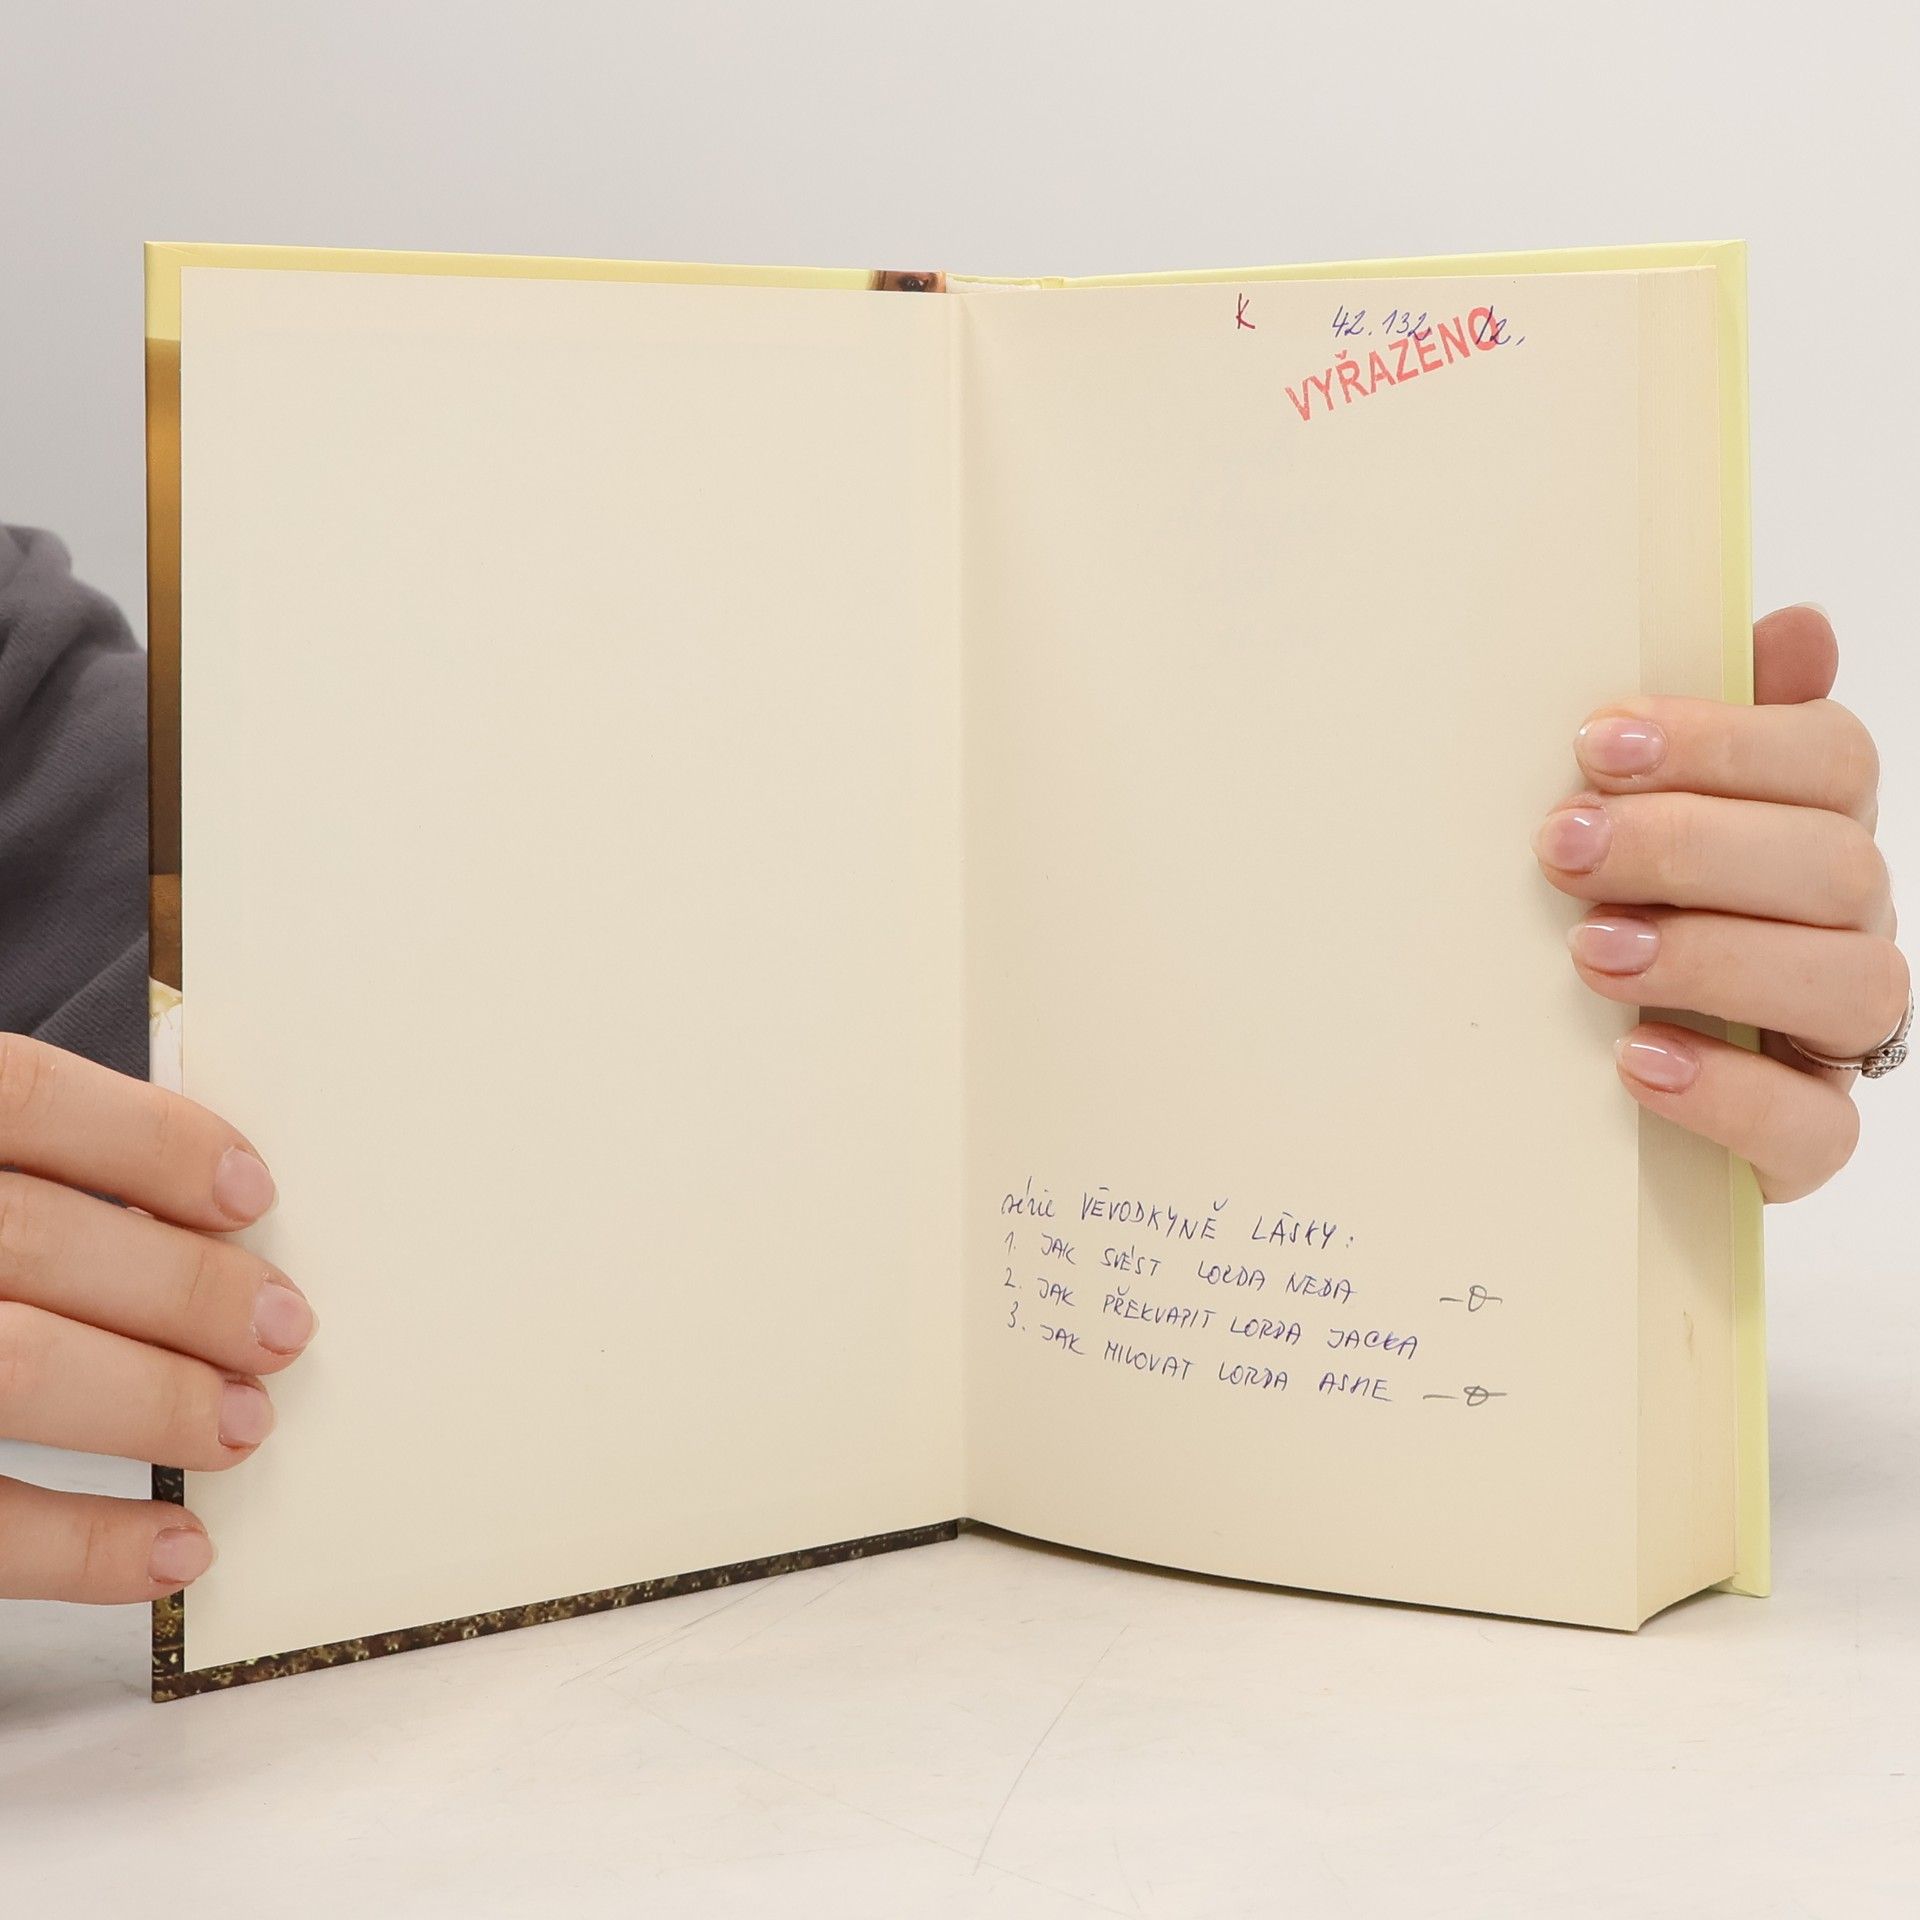 K 42.132 /2,
VYŘAZENO
série VÉVODKYNĚ LÁSKY:
1. JAK SVÉST LORDA NEDA —0—
2. JAK PŘEKVAPIT LORDA JACKA
3. JAK MILOVAT LORDA ASHE —0—